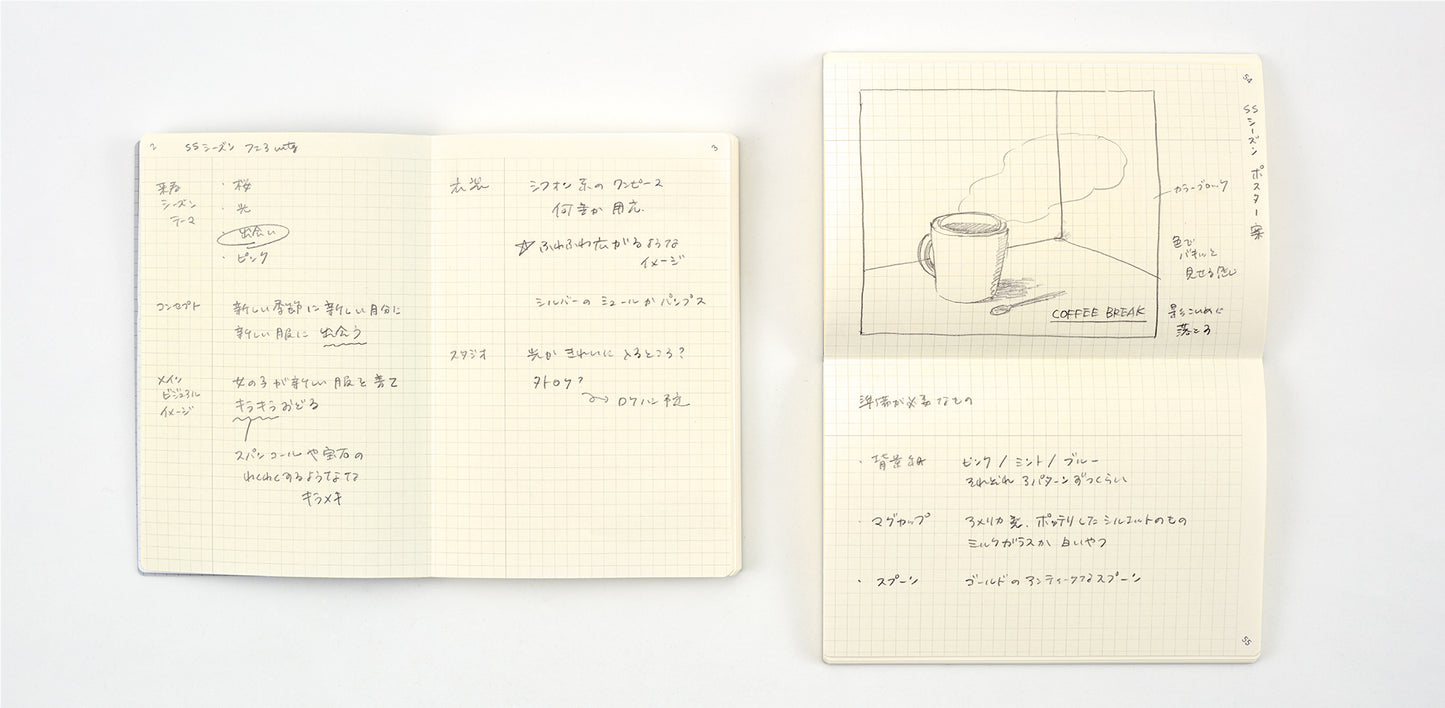 2
SSシーズン フェアmtg
来春
シーズン
テーマ
・桜
・光
・出会い
・ピンク
コンセプト
新しい季節に新しい自分に
新しい服に出会う
メイン
ビジュアル
イメージ
女の子が新しい服を着て
キラキラおどる
スパンコールや宝石の
わくわくするような
キラメキ
3
衣装
シフォン系のワンピース
何着か用意
☆ふわふわ広がるような
イメージ
シルバーのミュールかパンプス
スタジオ
光がきれいにとるところ?
外ロケ?
ロケハン予定
54
SSシーズン ポスター案
カラーブロック
色で
パキッと
見せる感じ
影こいめに
落とす
COFFEE BREAK
準備が必要なもの
・背景紙
ピンク/ミント/ブルー
それぞれ3パターンずつくらい
・マグカップ
アメリカ製、ポッテリしたシルエットのもの
ミルクガラスか白いやつ
・スプーン
ゴールドのアンティークなスプーン
55